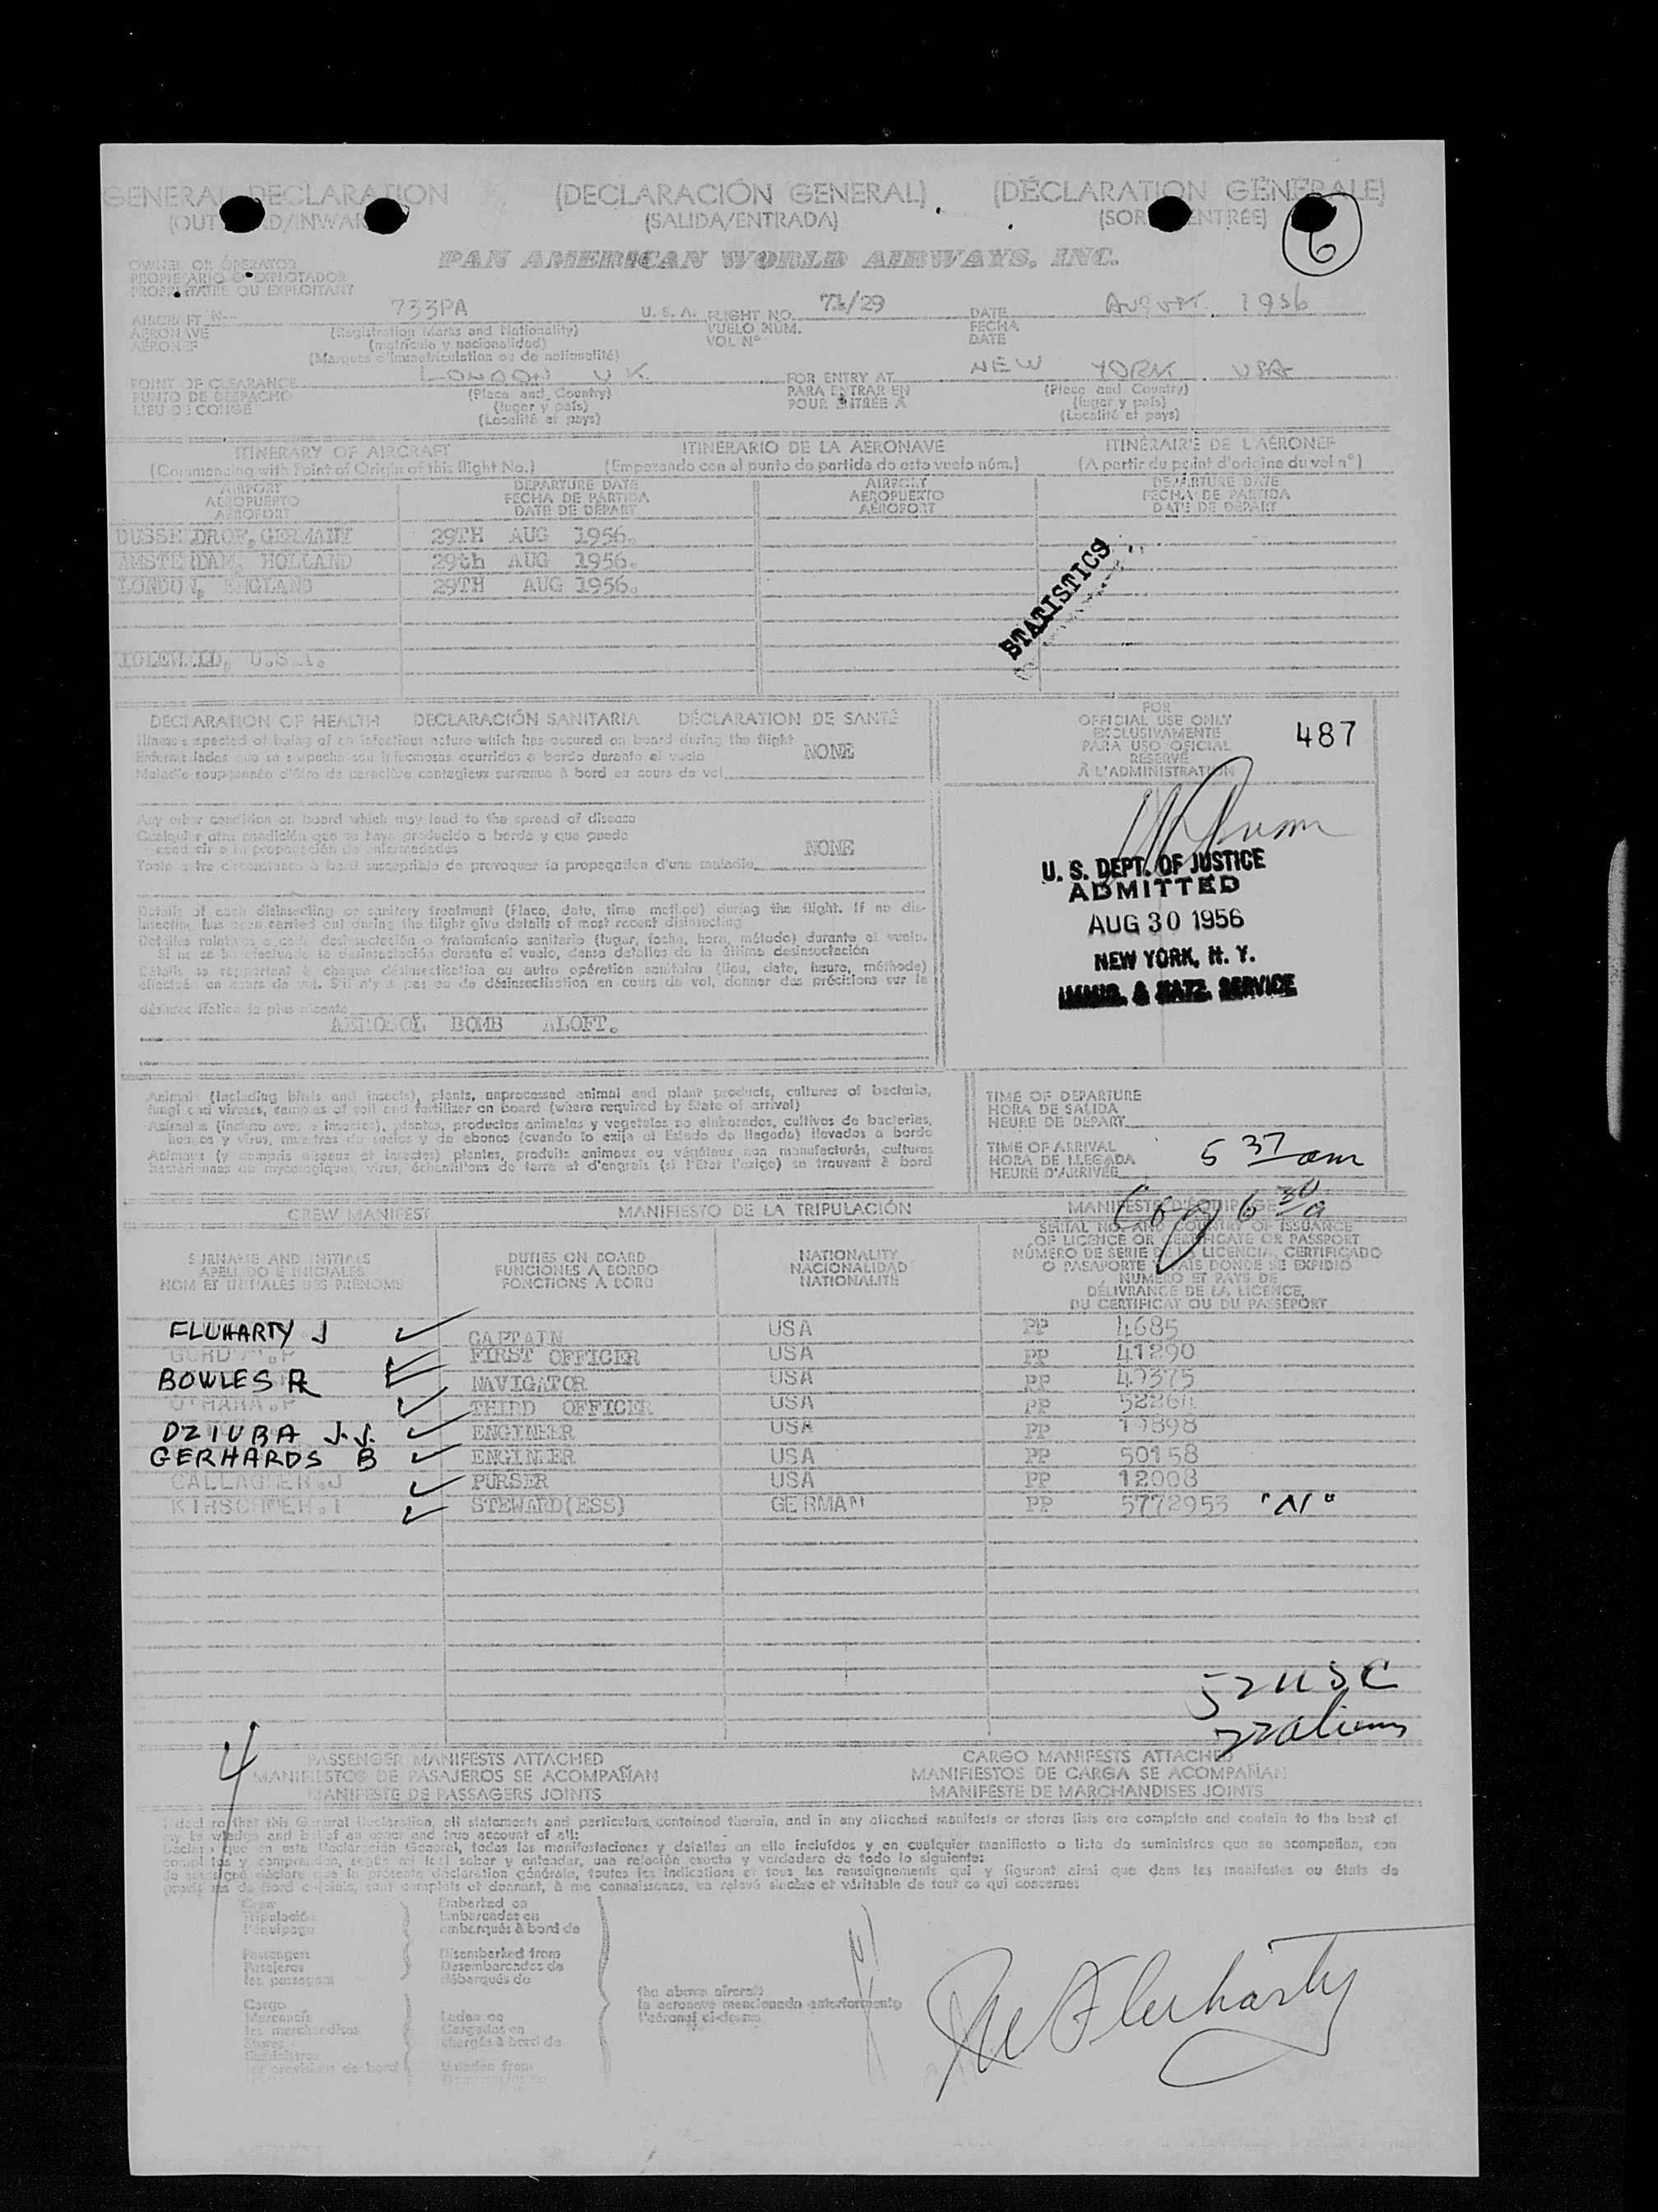 GENERAL DECLARATION (DECLARACIÓN GENERAL) (DÉCLARATION GÉNÉRALE)
(SALIDA/ENTRADA)
6
PAN AMERICAN WORLD AIRWAYS, INC.
OWNER OR OPERATOR
PROPIETARIO O EXPLOTADOR
PROPRIETAIRE OU EXPLOITANT
AIRCRAFT N 733PA U. S. A. FLIGHT NO. DATE AUGUST 1956
AERONAVE (Registration Marks and Nationality) VUELO NÚM. FECHA
AÉRONEF (matrícula y nacionalidad) VOL Nº DATE
(Marques d'immatriculation ou de nationalité)
POINT OF CLEARANCE LONDON UK FOR ENTRY AT NEW YORK USA
PUNTO DE DESPACHO (Place and Country) PARA ENTRAR EN (Place and Country)
LIEU DE CONGÉ (lugar y país) POUR ENTRÉE À (lugar y país)
(Localité et pays) (Localité et pays)
ITINERARY OF AIRCRAFT ITINERARIO DE LA AERONAVE ITINÉRAIRE DE L'AÉRONEF
(Commencing with Point of Origin of this flight No.) (Empezando con el punto de partida de este vuelo núm.) (A partir du point d'origine du vol nº)
AIRPORT DEPARTURE DATE AIRPORT DEPARTURE DATE
AEROPUERTO FECHA DE PARTIDA AEROPUERTO FECHA DE PARTIDA
AÉROPORT DATE DE DÉPART AÉROPORT DATE DE DÉPART
DUSSELDROF, GERMANY 29TH AUG 1956.
AMSTERDAM, HOLLAND 29th AUG 1956.
LONDON, ENGLAND 29TH AUG 1956.
STATISTICS
IDLEWILD, U.S.A.
DECLARATION OF HEALTH DECLARACIÓN SANITARIA DÉCLARATION DE SANTÉ
Illness suspected of being of an infectious nature which has occured on board during the flight
Enfermedades que se sospecha son infecciosas ocurridas a bordo durante el vuelo NONE
Maladie soupçonnée d'être de caractère contagieux survenue à bord en cours de vol
FOR
OFFICIAL USE ONLY
EXCLUSIVAMENTE
PARA USO OFICIAL
RÉSERVÉ
À L'ADMINISTRATION
487
Any other condition on board which may lead to the spread of disease
Cualquier otra condición que se haya producido a bordo y que puede
conducir a la propagación de enfermedades NONE
Toute autre circonstance à bord susceptible de provoquer la propagation d'une maladie
U. S. DEPT. OF JUSTICE
ADMITTED
AUG 30 1956
NEW YORK, N. Y.
IMMIG. & NATZ. SERVICE
Details of each disinsecting or sanitary treatment (Place, date, time method) during the flight. If no dis-
insecting has been carried out during the flight give details of most recent disinsecting
Detalles relativos a cada desinsectación o tratamiento sanitario (lugar, fecha, hora, método) durante el vuelo.
Si no se ha efectuado la desinsectación durante el vuelo, dense detalles de la última desinsectación
Détails se rapportant à chaque désinsectisation ou autre opération sanitaire (lieu, date, heure, méthode)
effectuée en cours de vol. S'il n'y a pas eu de désinsectisation en cours de vol, donner des précisions sur la
désinsectisation la plus récente
AEROSOL BOMB ALOFT.
Animals (including birds and insects), plants, unprocessed animal and plant products, cultures of bacteria,
fungi and viruses, samples of soil and fertilizer on board (where required by State of arrival)
Animales (incluso aves e insectos), plantas, productos animales y vegetales no elaborados, cultivos de bacterias,
hongos y virus, muestras de suelos y de abonos (cuando lo exija el Estado de llegada) llevados a bordo
Animaux (y compris oiseaux et insectes) plantes, produits animaux ou végétaux non manufacturés, cultures
bactériennes ou mycologiques, virus, échantillons de terre et d'engrais (si l'État l'exige) se trouvant à bord
TIME OF DEPARTURE
HORA DE SALIDA
HEURE DE DÉPART
TIME OF ARRIVAL
HORA DE LLEGADA 5 37 am
HEURE D'ARRIVÉE
6 30 a
CREW MANIFEST MANIFIESTO DE LA TRIPULACIÓN MANIFESTE D'ÉQUIPAGE
SURNAME AND INITIALS DUTIES ON BOARD NATIONALITY SERIAL NO. AND COUNTRY OF ISSUANCE
APELLIDO E INICIALES FUNCIONES A BORDO NACIONALIDAD OF LICENCE OR CERTIFICATE OR PASSPORT
NOM ET INITIALES DES PRÉNOMS FONCTIONS À BORD NATIONALITÉ NÚMERO DE SERIE DE LA LICENCIA, CERTIFICADO
O PASAPORTE Y PAÍS DONDE SE EXPIDIÓ
NUMÉRO ET PAYS DE
DÉLIVRANCE DE LA LICENCE,
DU CERTIFICAT OU DU PASSEPORT
FLUHARTY J CAPTAIN USA PP 4685
FIRST OFFICER USA PP 41290
BOWLES R NAVIGATOR USA PP 49375
O'HARA.P THIRD OFFICER USA PP
DZIUBA J.J. ENGINEER USA PP 19898
GERHARDS B ENGINEER USA PP 50158
GALLAGHER.J PURSER USA PP 12008
KIRSCHNER.I STEWARD(ESS) GERMAN PP 5772953 "N"
52 USC
22 aliens
4
PASSENGER MANIFESTS ATTACHED CARGO MANIFESTS ATTACHED
MANIFIESTOS DE PASAJEROS SE ACOMPAÑAN MANIFIESTOS DE CARGA SE ACOMPAÑAN
MANIFESTE DE PASSAGERS JOINTS MANIFESTE DE MARCHANDISES JOINTS
I declare that this General Declaration, all statements and particulars contained therein, and in any attached manifests or stores lists are complete and contain to the best of
my knowledge and belief an exact and true account of all:
Declaro que en esta Declaración General, todas las manifestaciones y detalles en ella incluídos y en cualquier manifiesto o lista de suministros que se acompañan, son
completos y comprenden, según mi leal saber y entender, una relación exacta y verdadera de todo lo siguiente:
Je soussigné déclare que la présente déclaration générale, toutes les indications et tous les renseignements qui y figurent ainsi que dans les manifestes ou états de
provisions de bord ci-joints, sont complets et donnent, à ma connaissance, un relevé sincère et véritable de tout ce qui concerne:
Crew Embarked on
Tripulación Embarcados en
l'équipage embarqués à bord de
Passengers Disembarked from
Pasajeros Desembarcados de
les passagers débarqués de
the above aircraft
la aeronave mencionada anteriormente
l'aéronef ci-dessus
Cargo
Mercancía Laden on
les marchandises Cargados en
Stores chargés à bord de
Suministros
les provisions de bord Unladen from
Fluharty